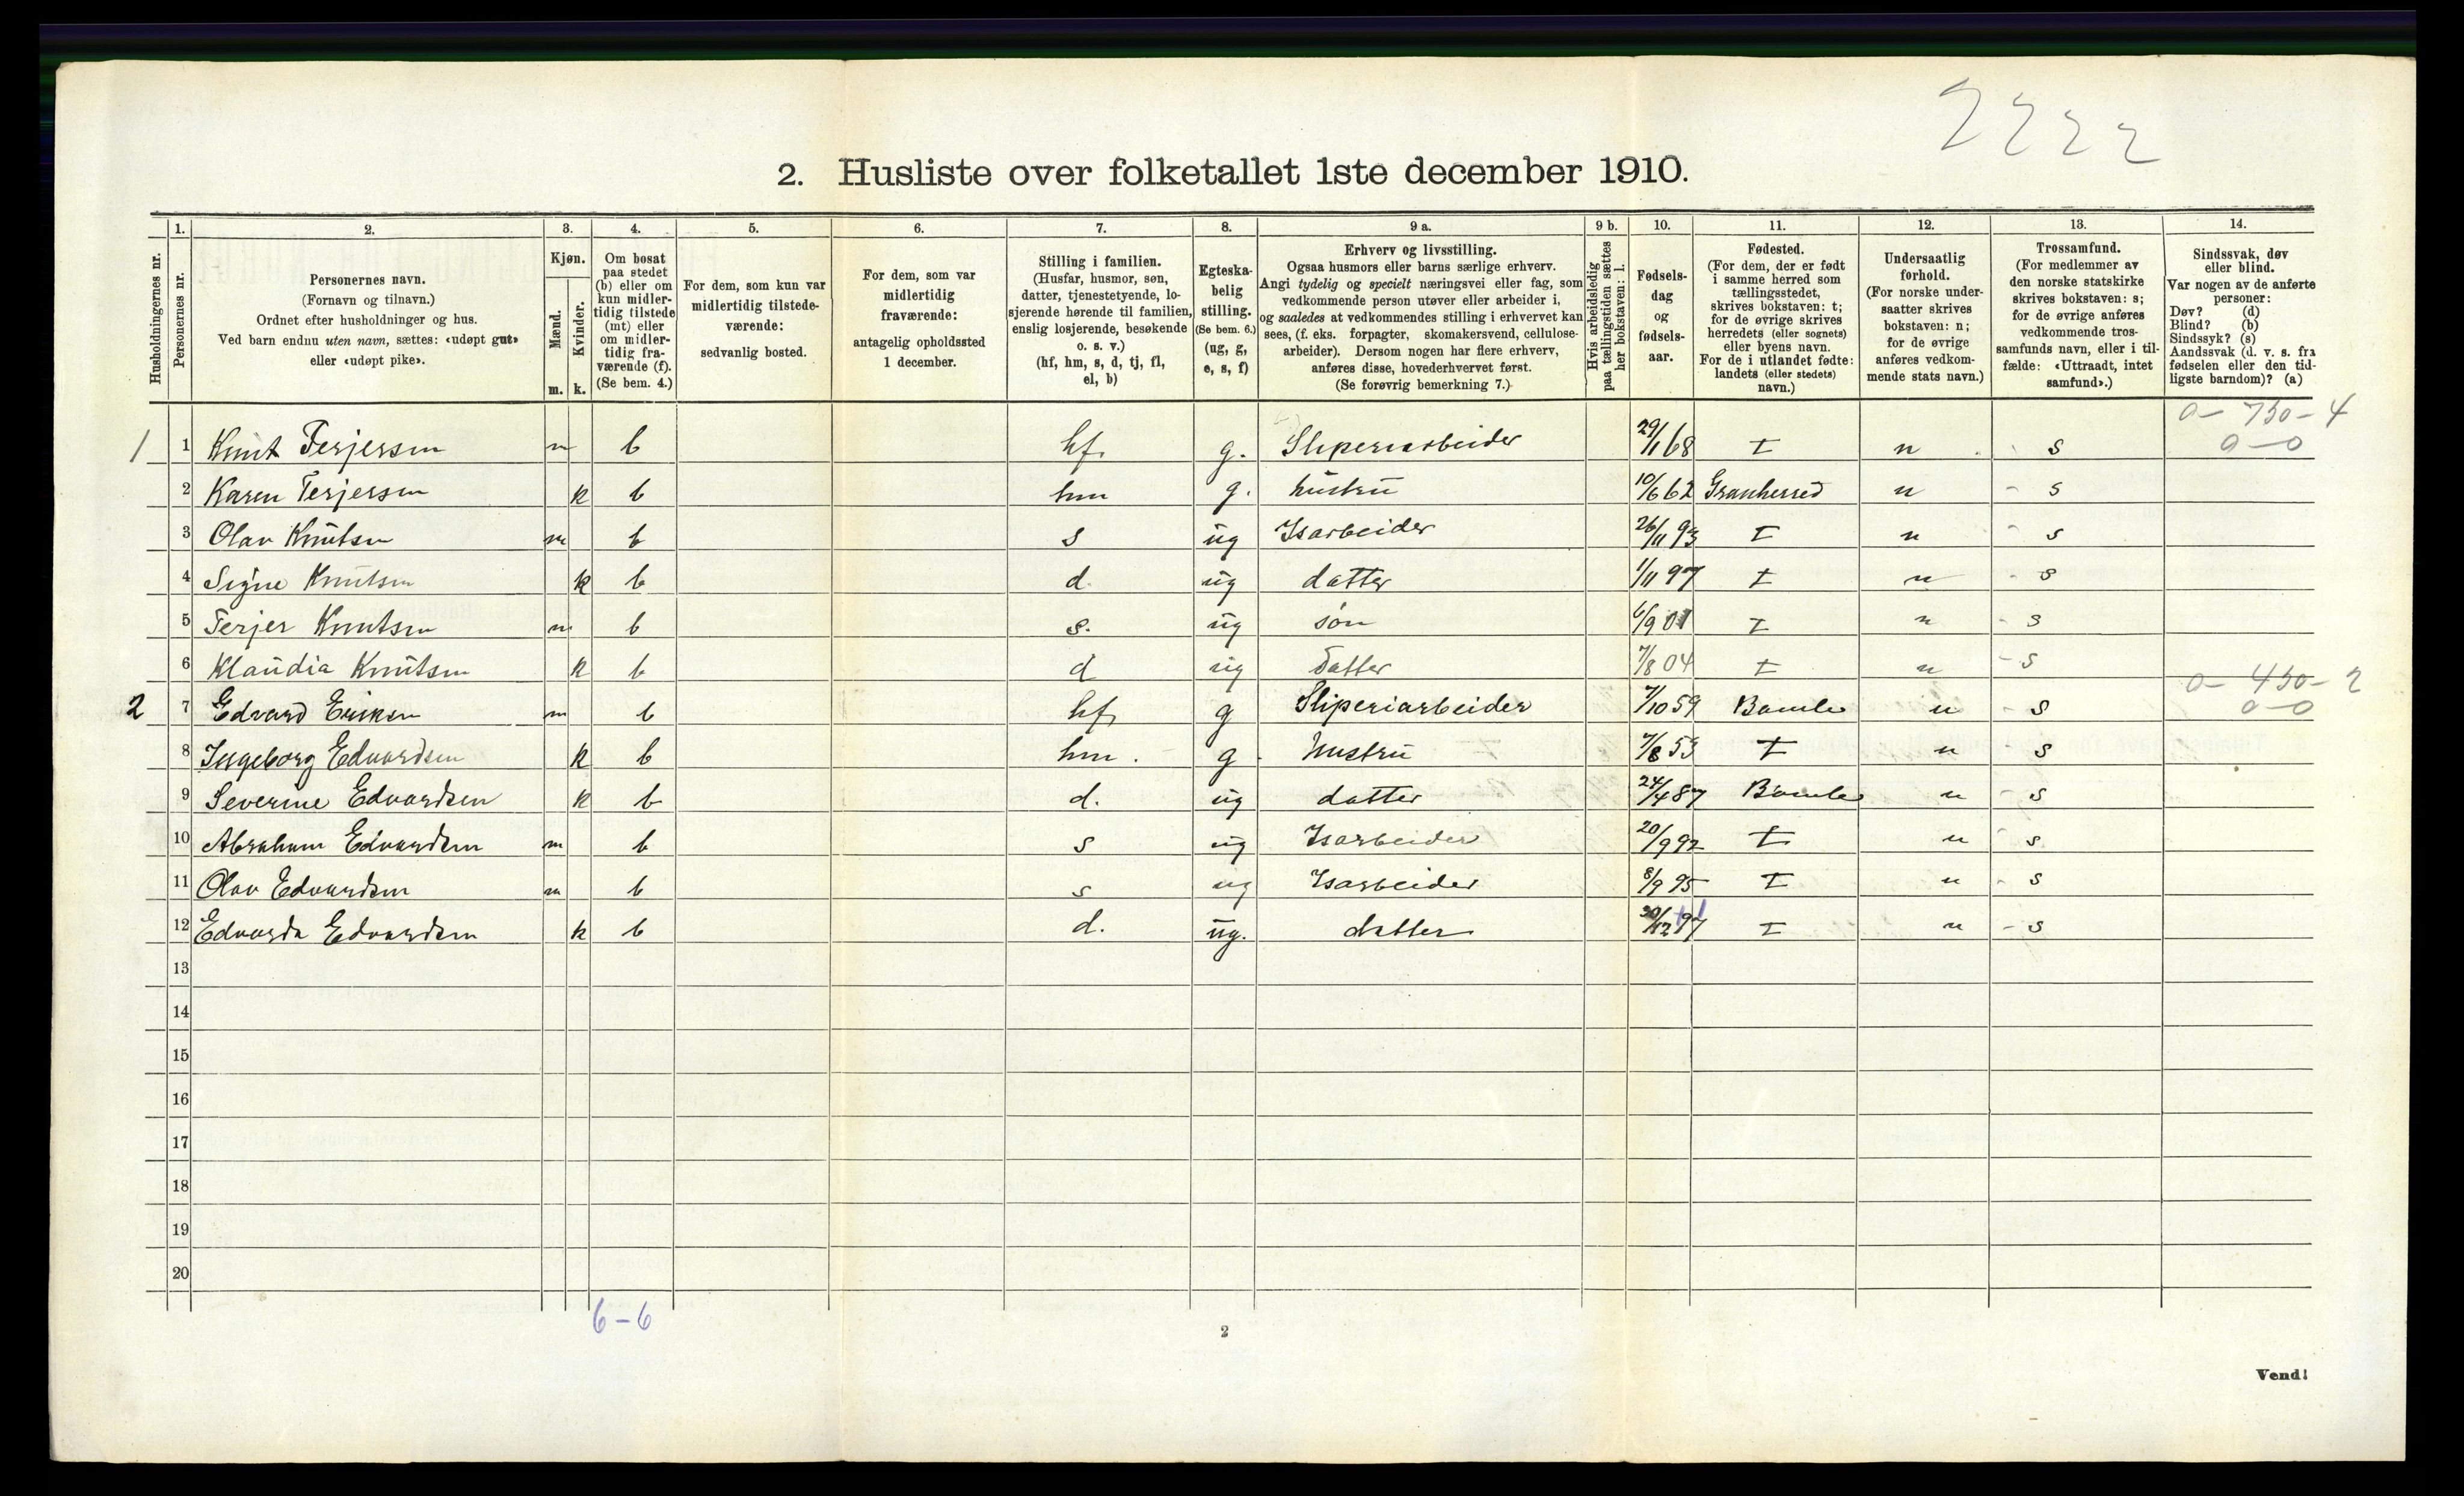 2222
2. Husliste over folketallet 1ste december 1910.
Husholdningernes nr.
1. Personernes nr.
2. Personernes navn.
(Fornavn og tilnavn.)
Ordnet efter husholdninger og hus.
Ved barn endnu uten navn, sættes: «udøpt gut»
eller «udøpt pike».
3. Kjøn.
Mænd. m.
Kvinder. k.
4. Om bosat
paa stedet
(b) eller om
kun midler-
tidig tilstede
(mt) eller
om midler-
tidig fra-
værende (f).
(Se bem. 4.)
5. For dem, som kun var
midlertidig tilstede-
værende:
sedvanlig bosted.
6. For dem, som var
midlertidig
fraværende:
antagelig opholdssted
1 december.
7. Stilling i familien.
(Husfar, husmor, søn,
datter, tjenestetyende, lo-
sjerende hørende til familien,
enslig losjerende, besøkende
o. s. v.)
(hf, hm, s, d, tj, fl,
el, b)
8. Egteska-
belig
stilling.
(Se bem. 6.)
(ug, g,
e, s, f)
9 a. Erhverv og livsstilling.
Ogsaa husmors eller barns særlige erhverv.
Angi tydelig og specielt næringsvei eller fag, som
vedkommende person utøver eller arbeider i,
og saaledes at vedkommendes stilling i erhvervet kan
sees, (f. eks. forpagter, skomakersvend, cellulose-
arbeider). Dersom nogen har flere erhverv,
anføres disse, hovederhvervet først.
(Se forøvrig bemerkning 7.)
9 b. Hvis arbeidsledig
paa tællingstiden sættes
her bokstaven: l.
10. Fødsels-
dag
og
fødsels-
aar.
11. Fødested.
(For dem, der er født
i samme herred som
tællingsstedet,
skrives bokstaven: t;
for de øvrige skrives
herredets (eller sognets)
eller byens navn.
For de i utlandet fødte:
landets (eller stedets)
navn.)
12. Undersaatlig
forhold.
(For norske under-
saatter skrives
bokstaven: n;
for de øvrige
anføres vedkom-
mende stats navn.)
13. Trossamfund.
(For medlemmer av
den norske statskirke
skrives bokstaven: s;
for de øvrige anføres
vedkommende tros-
samfunds navn, eller i til-
fælde: «Uttraadt, intet
samfund».)
14. Sindssvak, døv
eller blind.
Var nogen av de anførte
personer:
Døv? (d)
Blind? (b)
Sindssyk? (s)
Aandssvak (d. v. s. fra
fødselen eller den tid-
ligste barndom)? (a)
0 - 750 - 4
1 1 Knut Terjersen m b hf. g. Sliperiarbeider 29/1 68 t n s 0-0
2 Karen Terjersen k b hm g. hustru 10/6 62 Granherred n - s
3 Olav Knutsen m b s ug Isarbeider 26/11 93 t n - s
4 Signe Knutsen k b d ug datter 1/11 97 t n - s
5 Terjer Knutsen m b s. ug søn 6/9 01 t n - s
6 Klaudia Knutsen k b d ug Datter 7/8 04 t n - s
0 - 450 - 2
2 7 Edvard Eriksen m b hf g Sliperiarbeider 7/10 59 Bamle n - s 0-0
8 Ingeborg Edvardsen k b hm. g. Hustru 7/8 53 t n - s
9 Severine Edvardsen k b d. ug datter 24/4 87 Bamle n - s
10 Abraham Edvardsen m b s ug Isarbeider 20/9 92 t n - s
11 Olav Edvardsen m b s ug Isarbeider 8/9 95 t n - s
12 Edvarda Edvardsen k b d. ug. datter 30/12 97 t n - s
13
14
15
16
17
18
19
20
6-6
2
Vend!